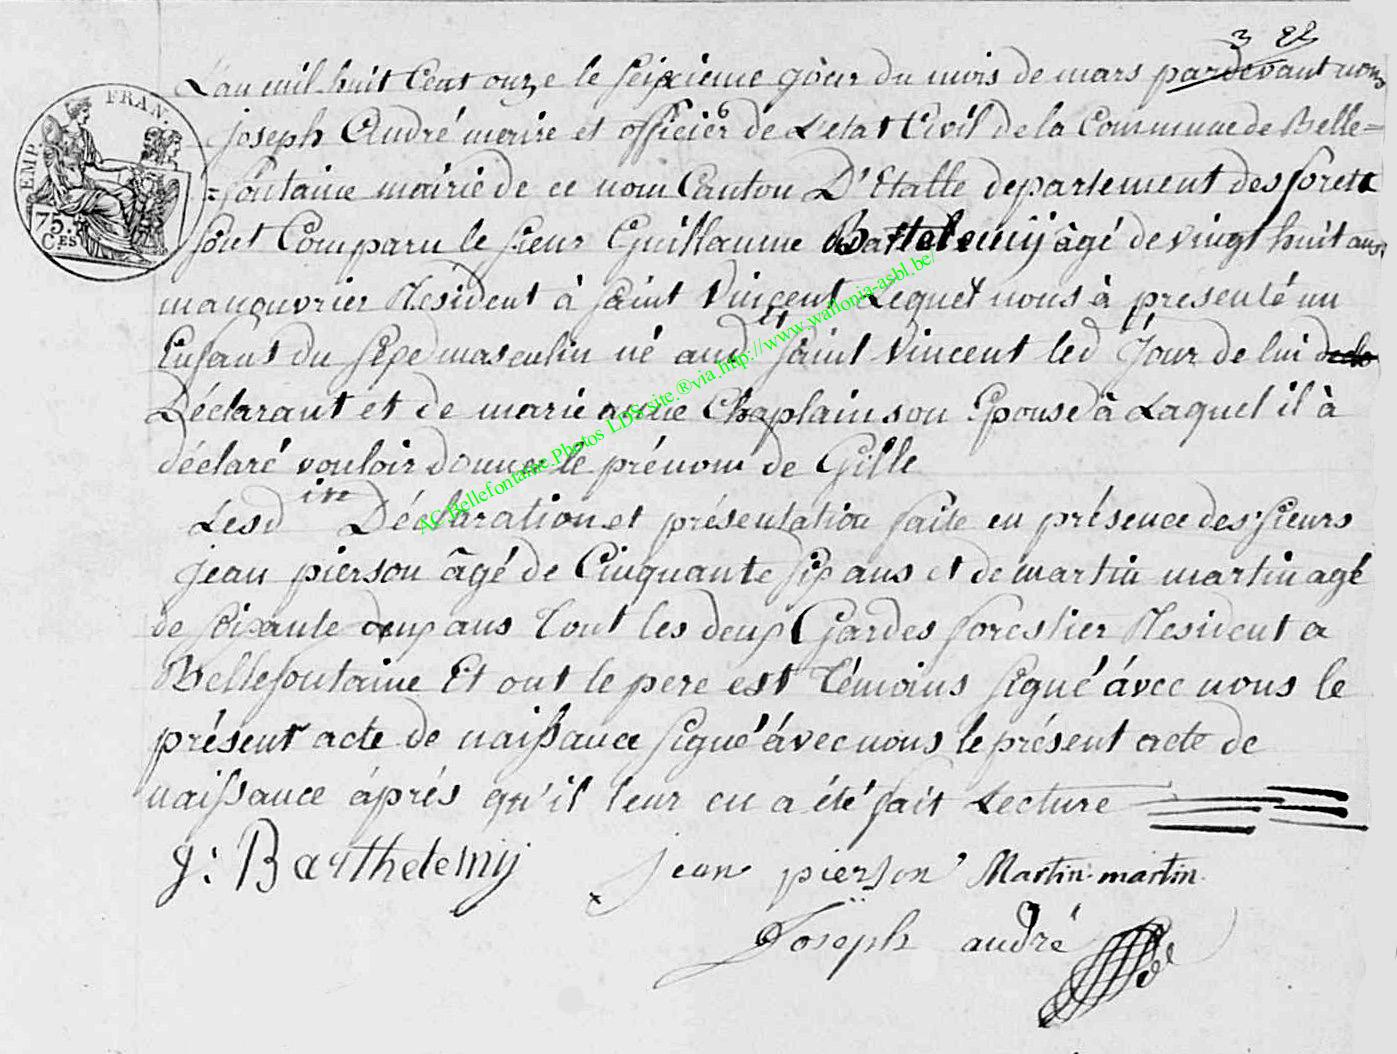 3 22
L'an mil huit Cent onze le seixieme jour du mois de mars pardevant nous
joseph André merire et officier de L'etat Civil de la Commune de Belle=
=fontaine mairie de ce nom Canton D'Etalle departement des foret
EMP. FRAN.
75. CES
sont Comparu le sieur Guillaume Bartelemij âgé de vingt huit ans
manouvrier Resident à saint Vincent Lequel nous à presenté un
Enfant du sexe masculin né aud it saint Vincent led it Jour de lui
Déclarant et de marie anne Chaplain son Epouse à Laquel il à
déclaré vouloir donner le prénom de Gille
Lesd ite Déclaration et présentation faite en présence des sieurs
jean pierson âgé de Cinquante six ans et de martin martin agé
de soixante deux ans tout les deux Gardes forestier Resident a
Bellefontaine Et ont le pere est témoins signé avec nous le
présent acte de naissance signé avec nous le présent acte de
naissance áprés qu'il leur en a été fait Lecture
g: Barthelemij jean pierson Martin martin
Joseph andré
AC Bellefontaine.Photos LDS site.®via.http://www.wallonia-asbl.be/